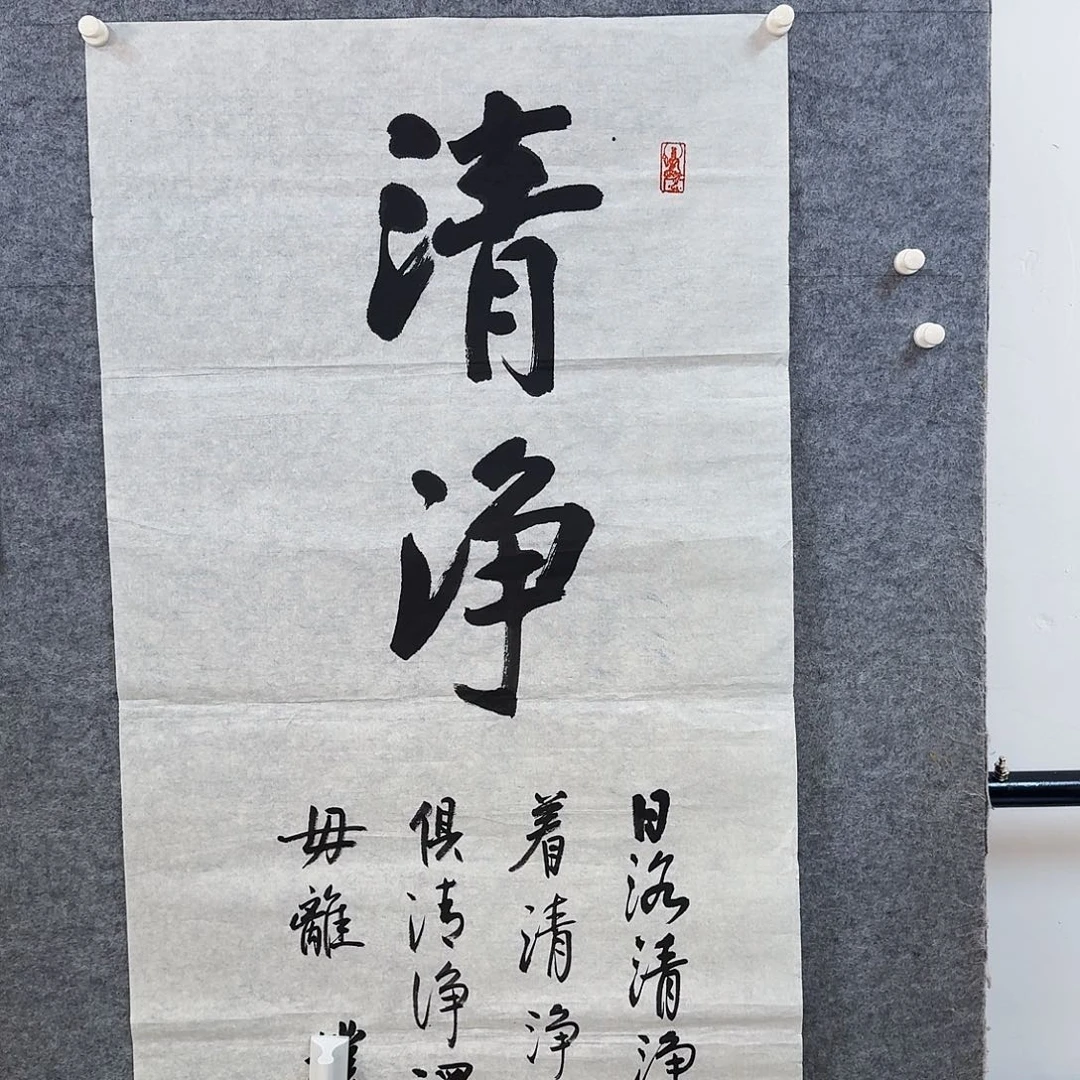 清净
日洛清净
着清净
俱清净
毋離